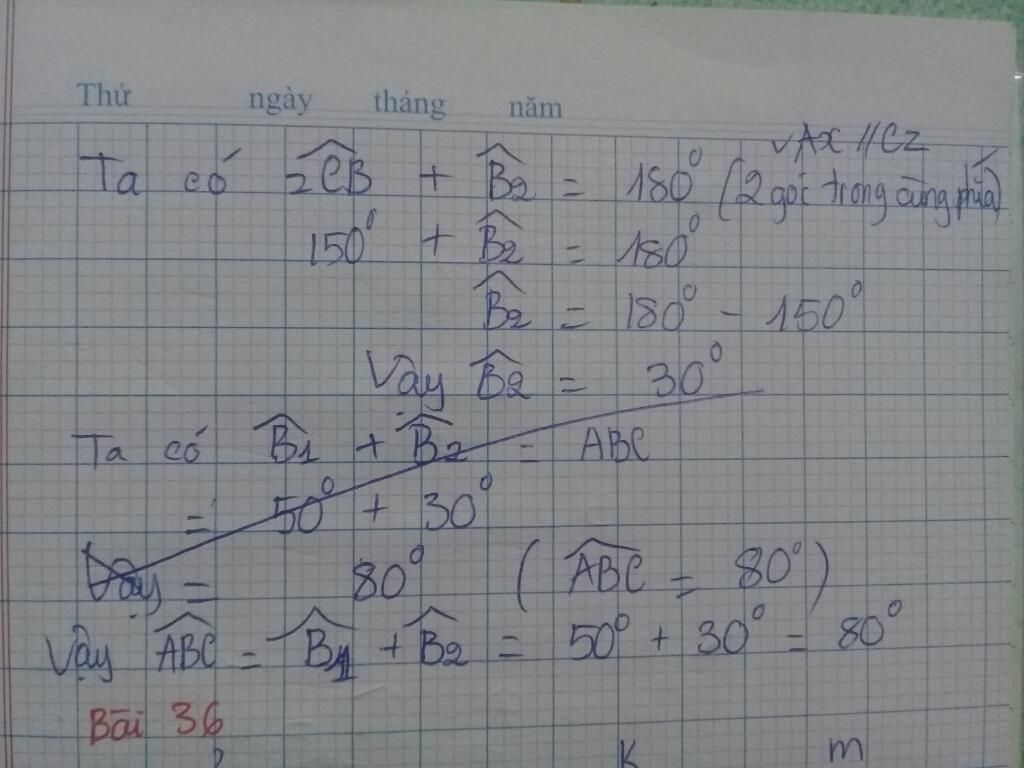 Thứ ngày tháng năm
vAx // Cz
Ta có zCB + B2 = 180° (2 góc trong cùng phía)
150° + B2 = 180°
B2 = 180° - 150°
Vậy B2 = 30°
Ta có B1 + B2 = ABC
= 50° + 30°
Vậy = 80° (ABC = 80°)
Vậy ABC = B1 + B2 = 50° + 30° = 80°
Bài 36
K m